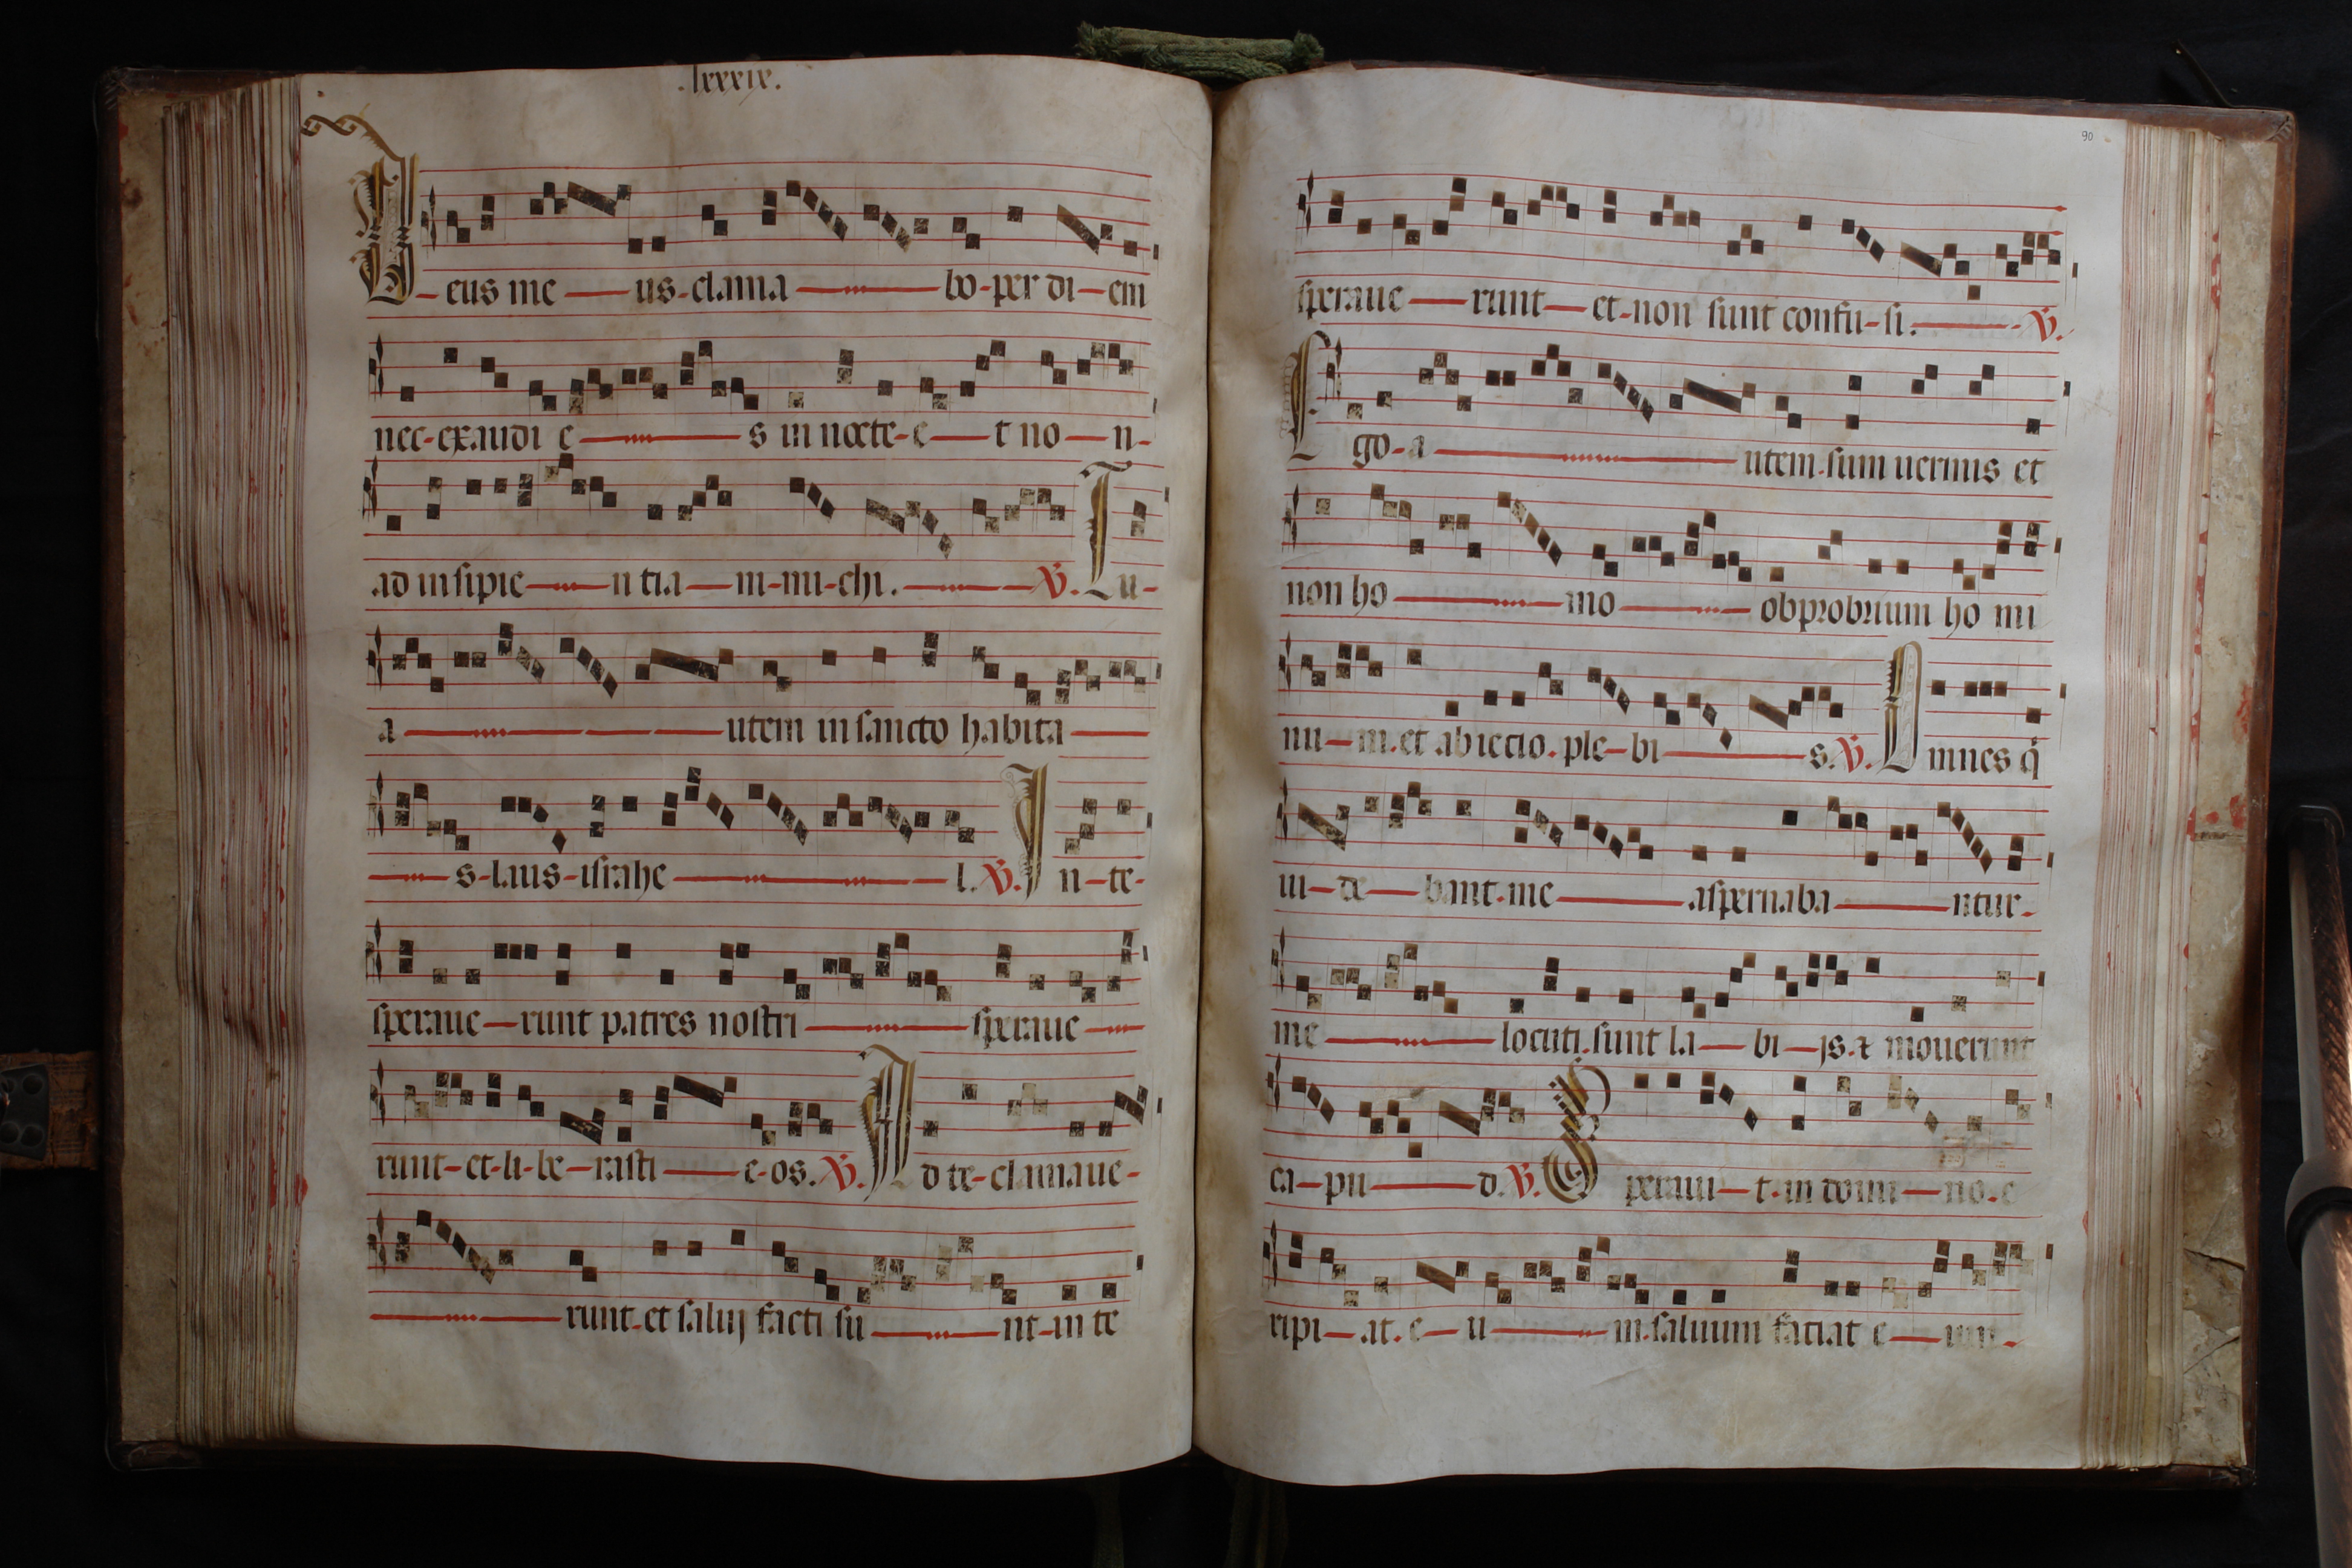 .lxxxix.
Deus me us clama bo per di em
nec exaudi e s in nocte e t no n
ad insipie n tia m mi chi. V. Tu
a utem in sancto habita
s laus israhe l. V. In te
speraue runt patres nostri speraue
runt et li be rasti e os. V. Ad te clamaue
runt et salui facti su nt in te
90
speraue runt et non sunt confu si. V.
Ego a utem sum uermis et
non ho mo obprobrium ho mi
nu m et abiectio ple bi s. V. Omnes q
ui de bant me aspernaba ntur
me locuti sunt la bi js. & mouerunt
ca pu d. V. Speraui t in domi no e
ripi at e u m saluum faciat e um